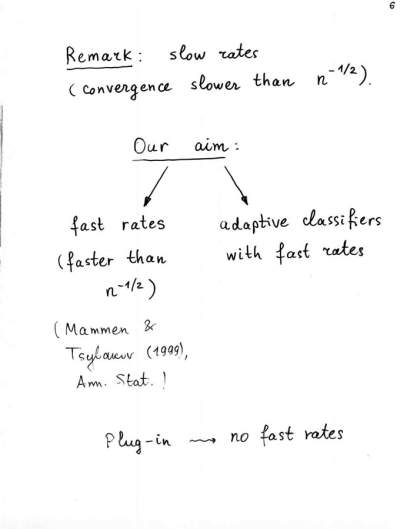 6
Remark: slow rates
(convergence slower than n^{-1/2}).
Our aim:
fast rates
(faster than
n^{-1/2})
(Mammen &
Tsybakov (1999),
Ann. Stat.)
adaptive classifiers
with fast rates
Plug-in ⇝ no fast rates